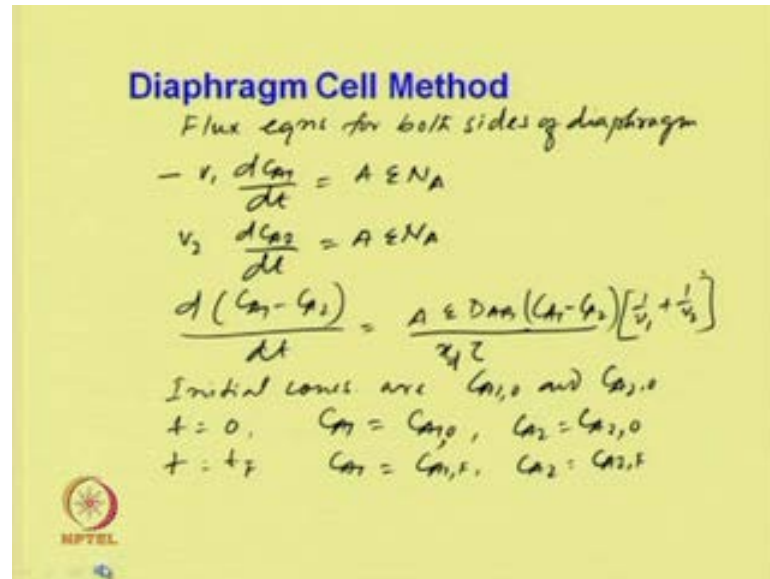 Diaphragm Cell Method
Flux eqns for both sides of diaphragm
- V₁ dC_A1/dt = A ε N_A
V₂ dC_A2/dt = A ε N_A
d(C_A1 - C_A2)/dt = A ε D_AB (C_A1 - C_A2)/x_d τ [1/v₁ + 1/v₂]
Initial concs are C_A1,0 and C_A2,0
t = 0, C_A1 = C_A1,0, C_A2 = C_A2,0
t = t_F C_A1 = C_A1,F, C_A2 = C_A2,F
NPTEL